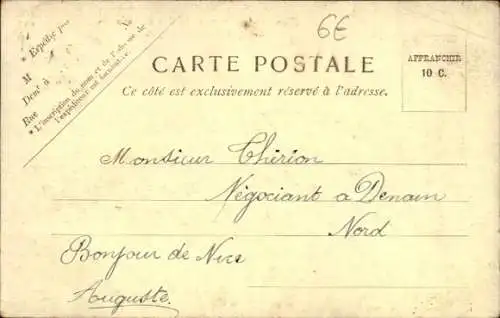 6E
* Expédié par
M
Demt à
Rue No
* L'inscription du nom et de l'adresse de
l'expéditeur est facultative.
CARTE POSTALE
Ce côté est exclusivement réservé à l'adresse.
AFFRANCHIR
10 C.
Monsieur Thérion
Négociant a Denain
Nord
Bonjour de Nice
Auguste